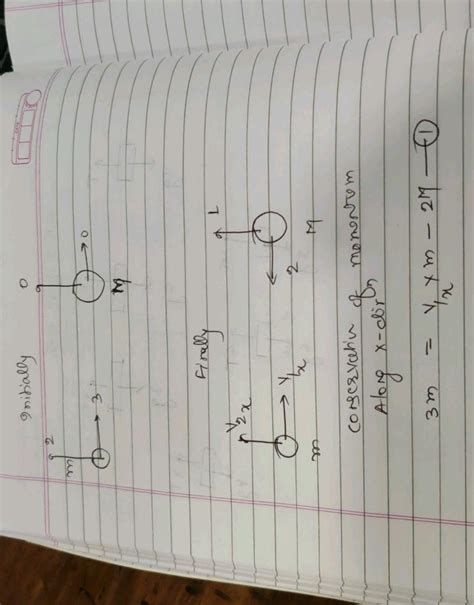 Initially
2 0
m 3 0
M
Finally
V2x 1
V1x 2
m M
conservation of momentum
Along x-dirn
3m = V1x × m - 2M — ①